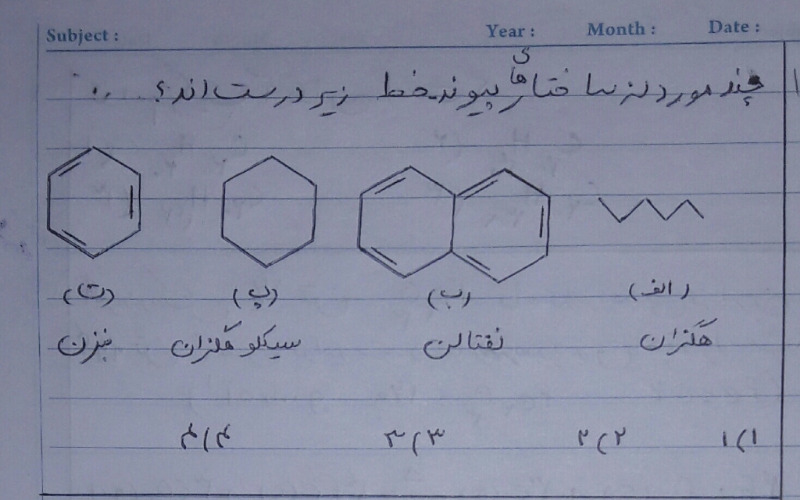 Subject :    Year :    Month :    Date :
۱ چند مورد از ساختارهای پیوند-خط زیر درست‌اند؟
(الف) (ب) (پ) (ت)
هگزان نفتالن سیکلوهگزان بنزن
۱) ۱ ۲) ۲ ۳) ۳ ۴) ۴